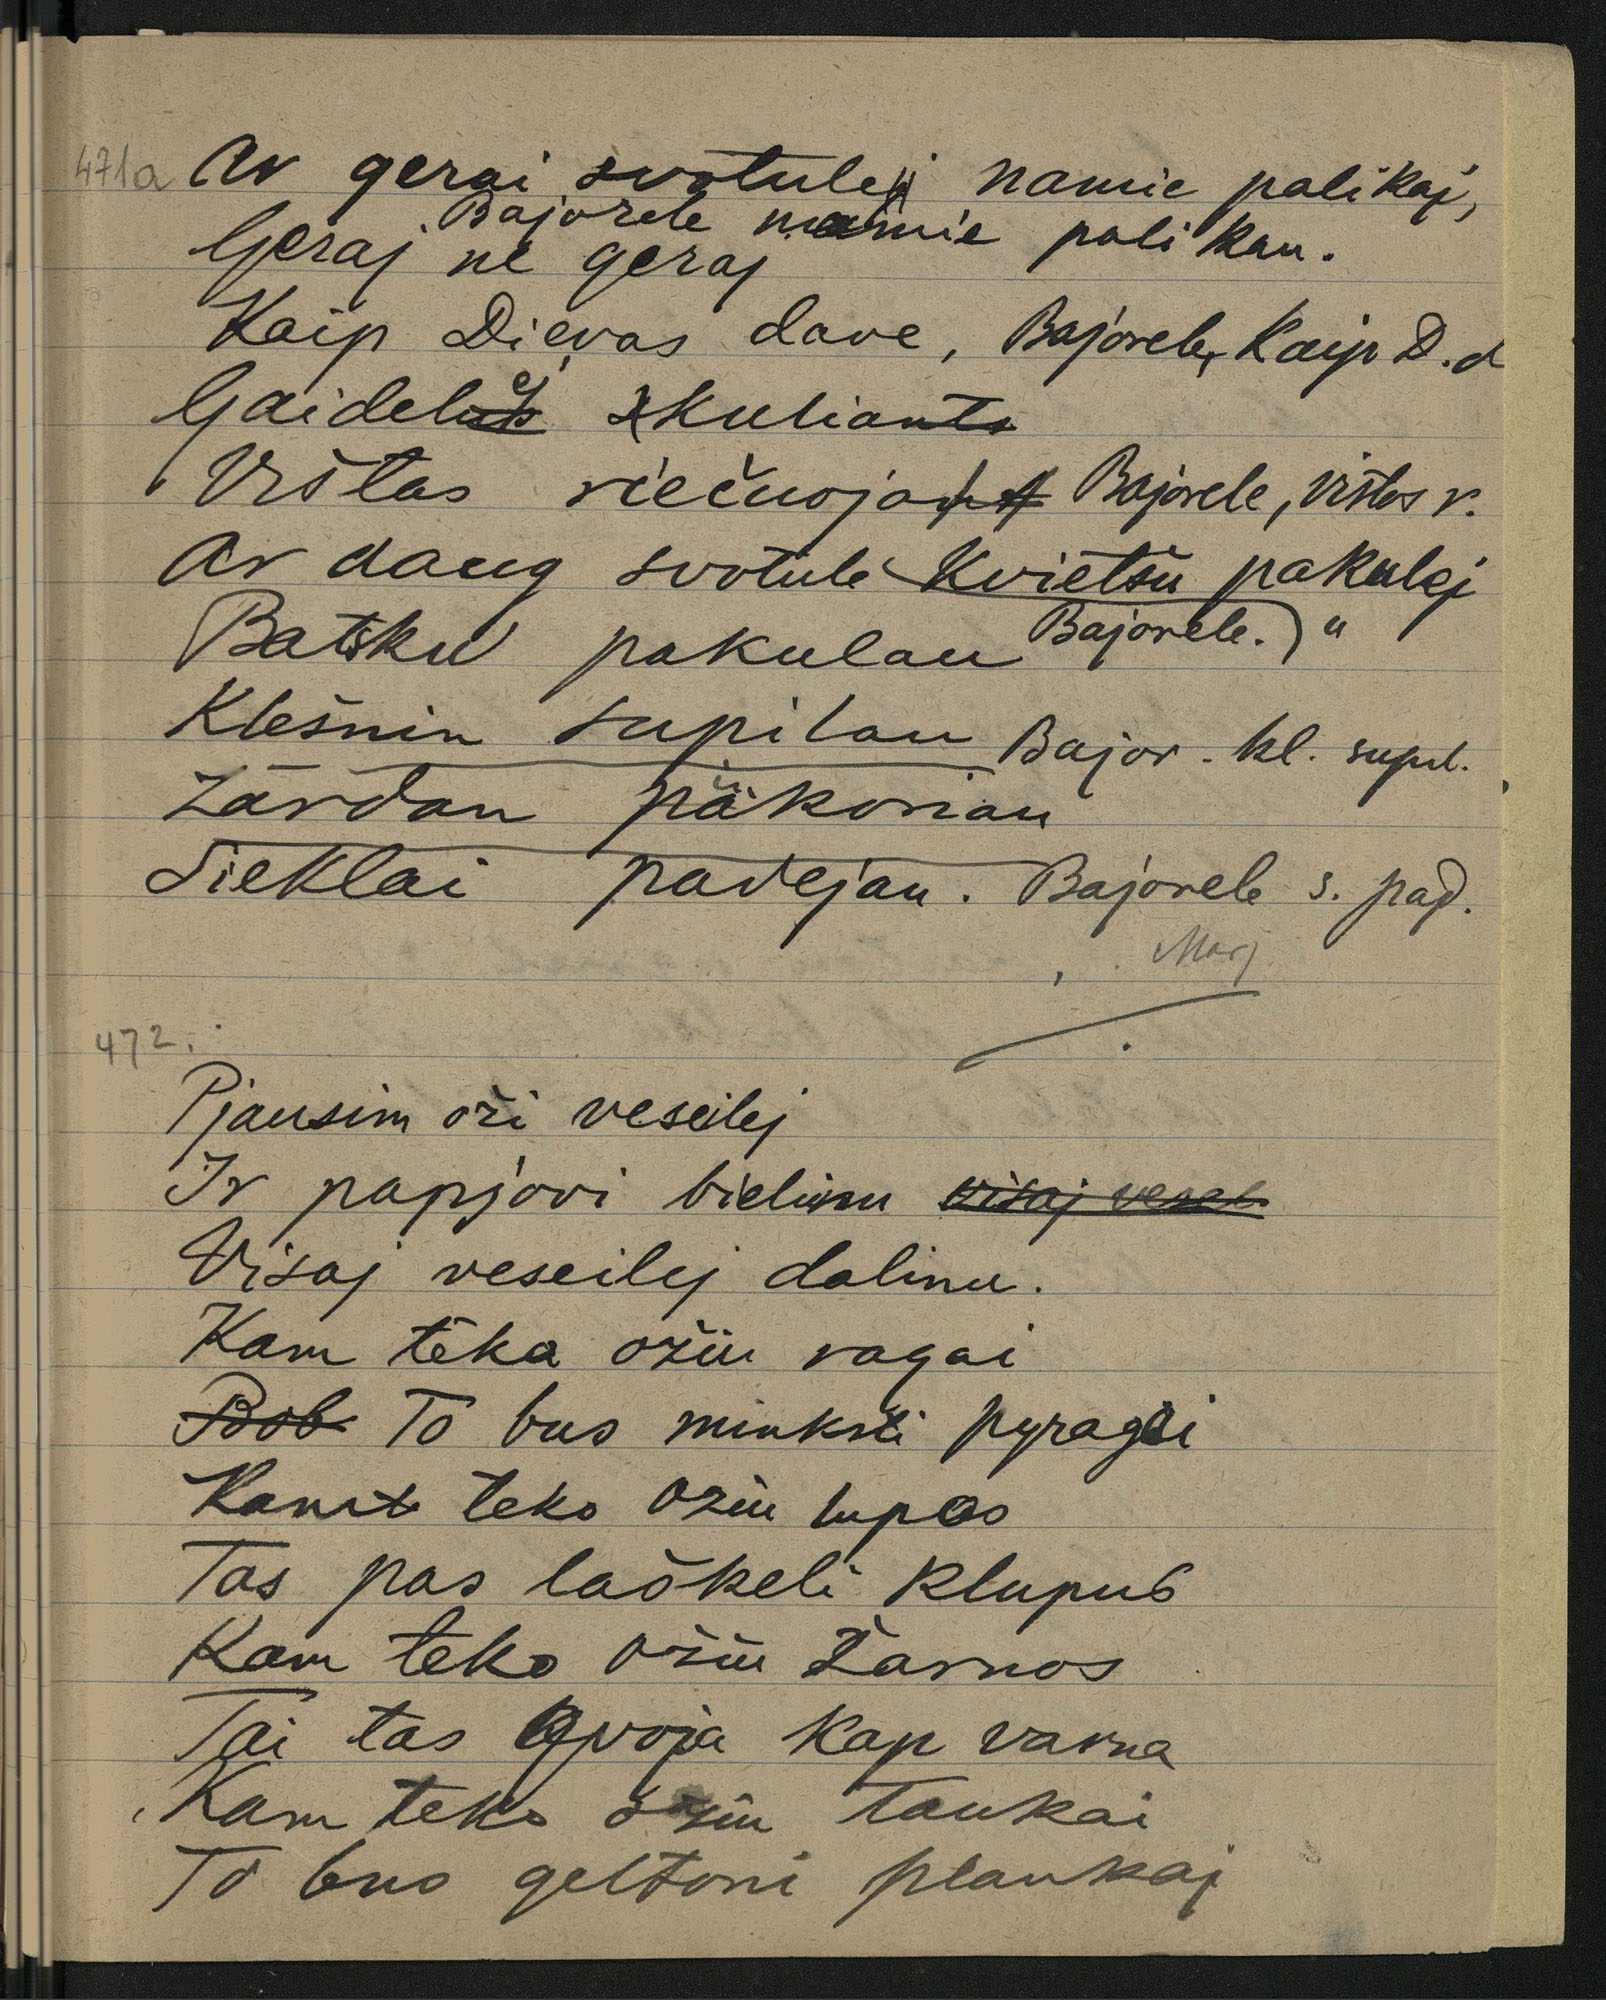 471a Ar gerai svotulej namie palikaj,
Bajorele namie palikau.
Geraj ne geraj
Kaip Dievas dave, Bajorele, Kaip D. d
Gaidelej kulianto
Vištas riečuoja Bajorele, vištas r.
Ar daug svotule kvietšu pakulej
Batsku pakulau Bajorele.) "
Klešnin supilau Bajor. kl. supil.
Zārdan pākoriau
Sieklai padejau. Bajorele s. pad.
Marj
472.
Pjausim oži veseilej
Ir papjovi bielinu visaj vesel
Visaj veseilej dalinu.
Kam tēka ožiu ragai
Bob To bus minksti pyragai
Kam teko ožiu lupos
Tas pas laškeli klupus
Kam teko ožiu žarnos
Tai tas gvoja kap varna
Kam teko ožiu taukai
To buo geltoni plaukaj